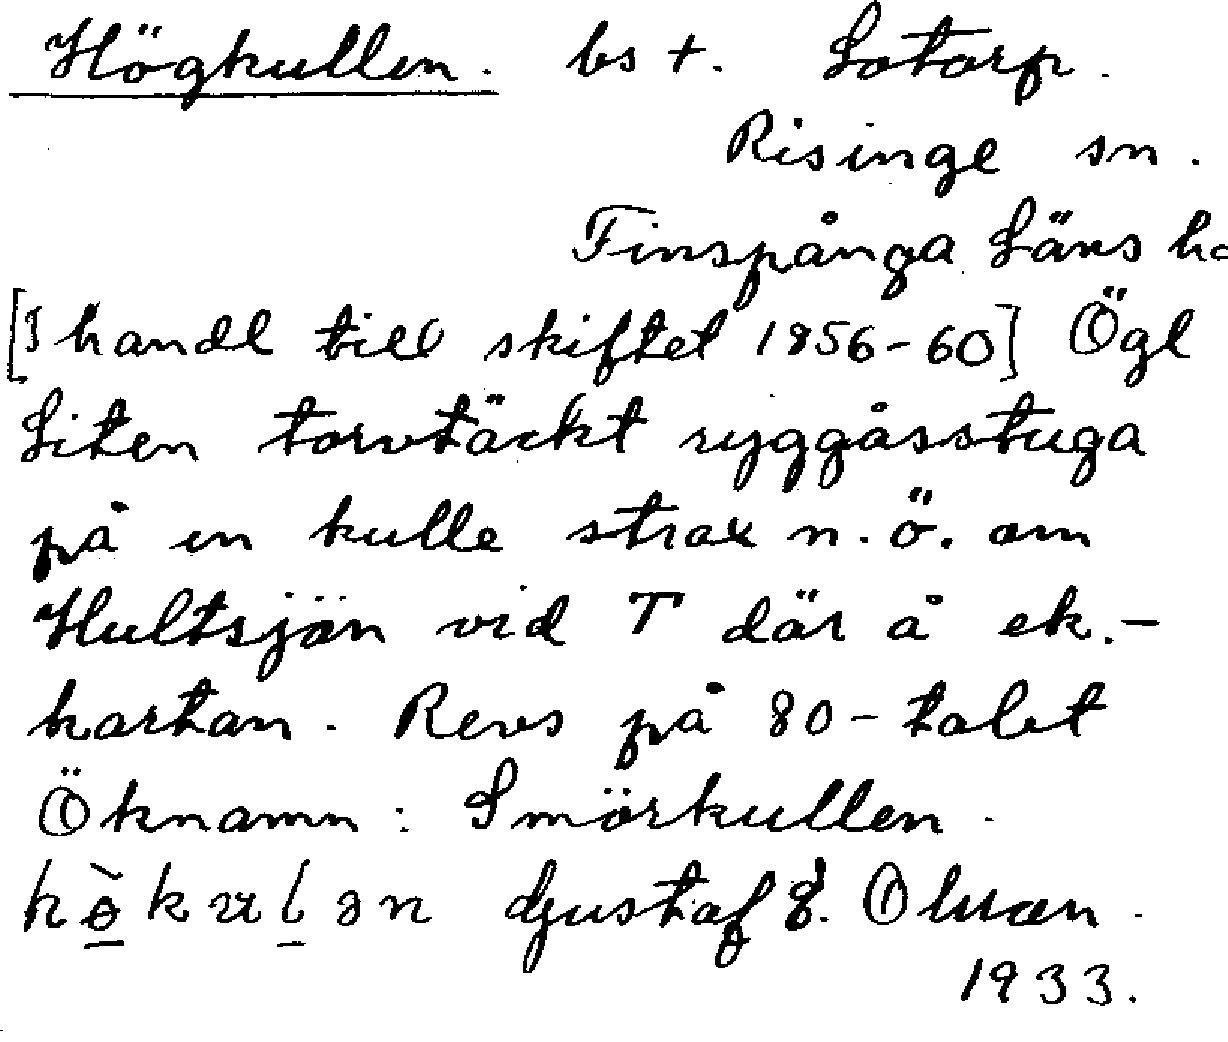 Högkullen. bs +. Lotorp.
Risinge sn.
Finspånga Läns hd
[I handl till skiftet 1856-60] Ögl
Liten torvtäckt ryggåsstuga
på en kulle strax n.ö. om
Hultsjön vid T där å ek.-
kartan. Revs på 80-talet
Öknamn: Smörkullen.
Gustaf
1933.